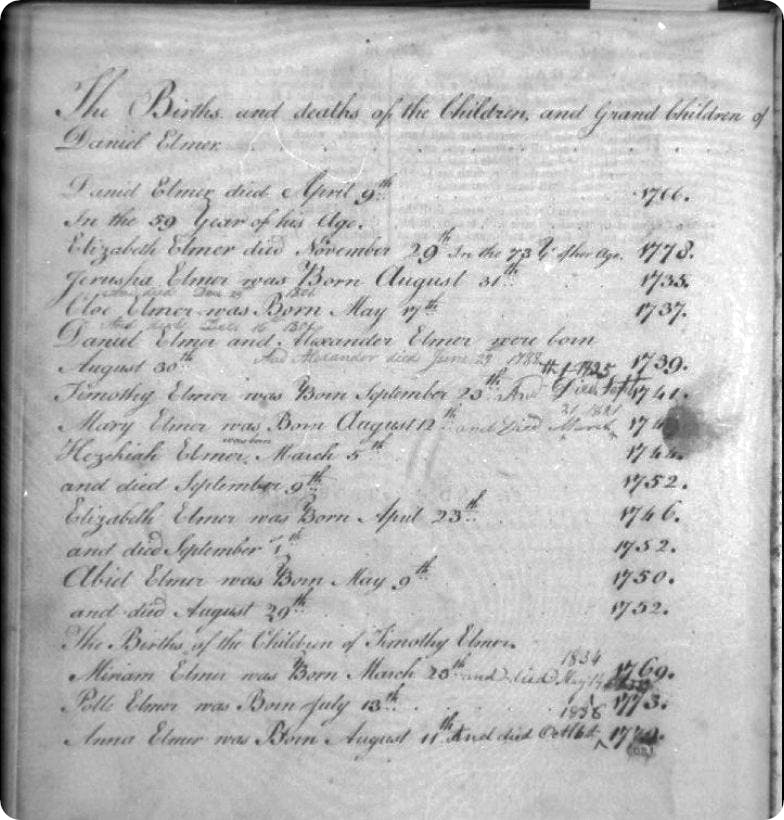 The Births and deaths of the Children, and Grand Children of
Daniel Elmer
Daniel Elmer died April 9th 1766.
In the 59 Year of his Age.
Elizabeth Elmer died November 29th In the 73 Yr of her Age. 1778.
Jerusha Elmer was Born August 31th 1735.
1806
Cloe Elmer was Born May 17th 1737.
And died Dec 16
Daniel Elmer and Alexander Elmer were born
August 30th And Alexander died June 29 1788 1739.
Timothy Elmer was Born September 23th And Died Sept 1741.
21 1821
Mary Elmer was Born August 12th and Died March
was born
Hezekiah Elmer March 5th 1744.
and died September 9th 1752.
Elizabeth Elmer was Born April 23th 1746.
and died September 1th 1752.
Abiel Elmer was Born May 9th 1750.
and died August 29th 1752.
The Births of the Children of Timothy Elmer.
1834
Miriam Elmer was Born March 23th and died May 14 1769.
Polle Elmer was Born July 13th 1773.
1838
Anna Elmer was Born August 11th And died Oct 16th